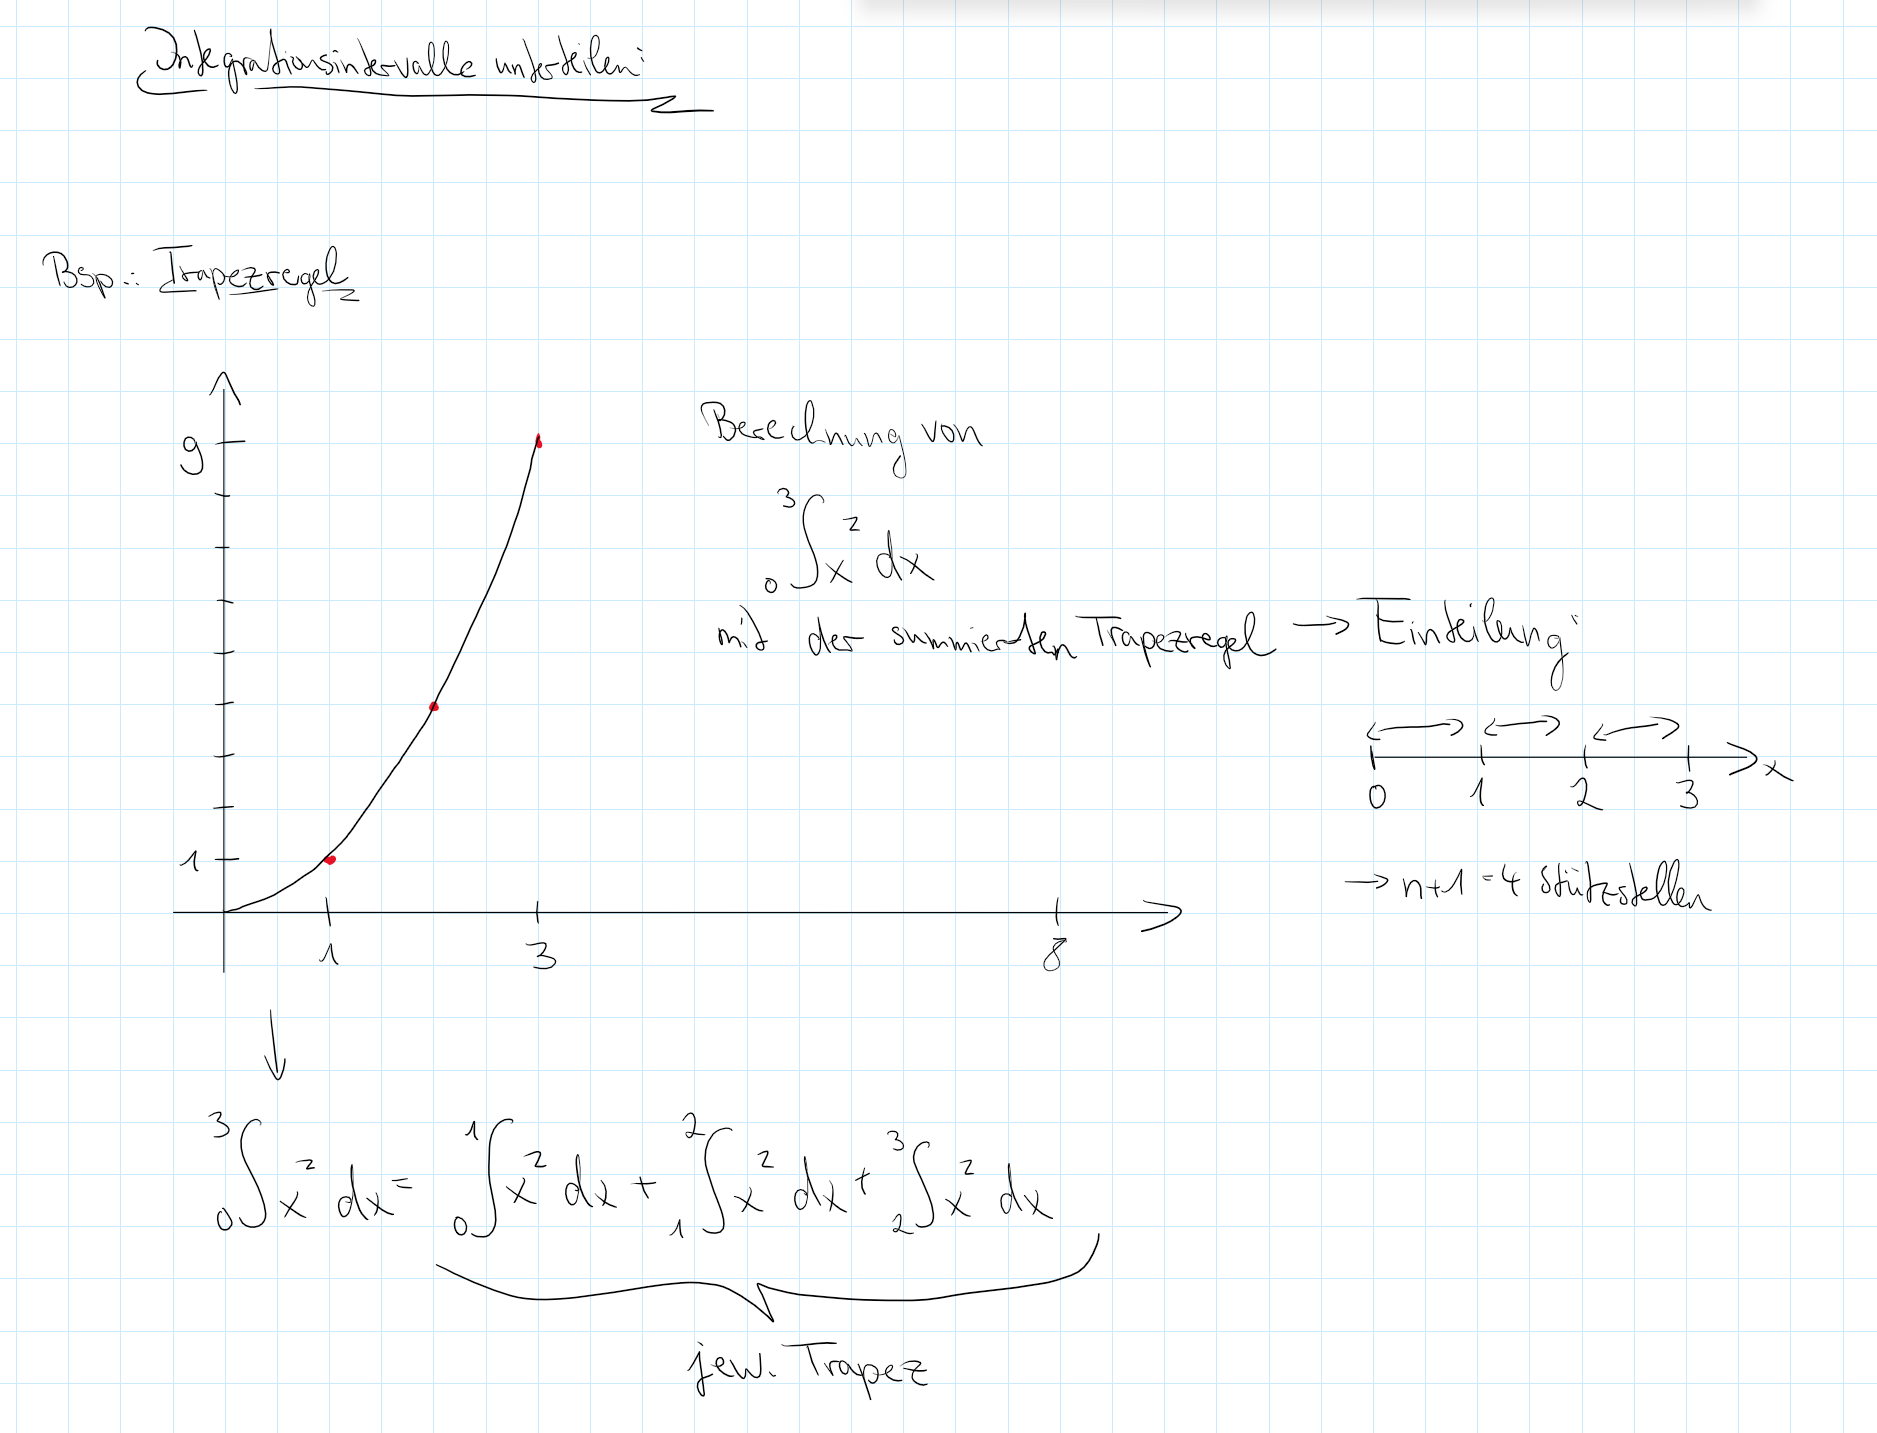 Integrationsintervalle unterteilen:
Bsp.: Trapezregel
9
1
1 3 8
Berechnung von
₀³∫ x² dx
mit der summierten Trapezregel → Einteilung:
0 1 2 3 x
→ n+1 = 4 Stützstellen
₀³∫ x² dx = ₀¹∫ x² dx + ₁²∫ x² dx + ₂³∫ x² dx
jew. Trapez